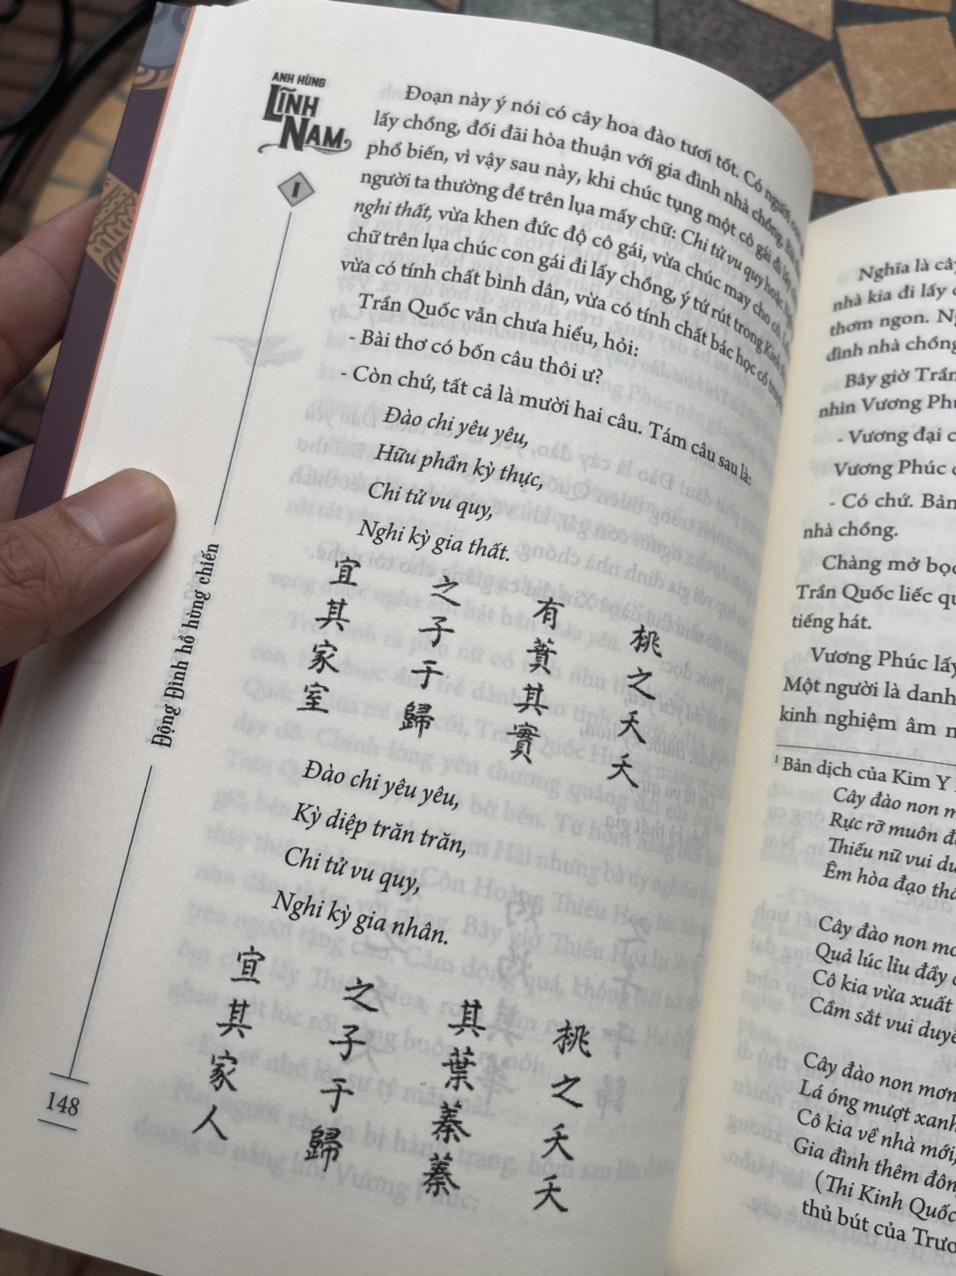 ANH HÙNG
LĨNH
NAM
I
Động Đình hồ hùng chiến
148
Đoạn này ý nói có cây hoa đào tươi tốt. Có người con
lấy chồng, đối đãi hòa thuận với gia đình nhà chồng.
phổ biến, vì vậy sau này, khi chúc tụng một cô gái đi lấy
người ta thường đề trên lụa mấy chữ: Chi tử vu quy hoặc
nghi thất, vừa khen đức độ cô gái, vừa chúc may cho cô.
chữ trên lụa chúc con gái đi lấy chồng, ý tứ rút trong Kinh
vừa có tính chất bình dân, vừa có tính chất bác học cổ
Trần Quốc vẫn chưa hiểu, hỏi:
- Bài thơ có bốn câu thôi ư?
- Còn chứ, tất cả là mười hai câu. Tám câu sau là:
Đào chi yêu yêu,
Hữu phần kỳ thực,
Chi tử vu quy,
Nghi kỳ gia thất.
桃之夭夭
有蕡其實
之子于歸
宜其家室
Đào chi yêu yêu,
Kỳ diệp trăn trăn,
Chi tử vu quy,
Nghi kỳ gia nhân.
桃之夭夭
其葉蓁蓁
之子于歸
宜其家人
Nghĩa là cây
nhà kia đi lấy
thơm ngon.
đình nhà chồng
Bây giờ Trần
nhìn Vương Phú
- Vương đại
Vương Phúc
- Có chứ. Bản
nhà chồng.
Chàng mở bọc
Trần Quốc liếc
tiếng hát.
Vương Phúc lấy
Một người là danh
kinh nghiệm âm
1 Bản dịch của Kim Y
Cây đào non
Rực rỡ muôn
Thiếu nữ vui
Êm hòa đạo
Cây đào non
Quả lúc lỉu đầy
Cô kia vừa xuất
Cầm sắt vui duyên
Cây đào non mơn
Lá óng mượt xanh
Cô kia về nhà mới,
Gia đình thêm
(Thi Kinh Quốc
thủ bút của